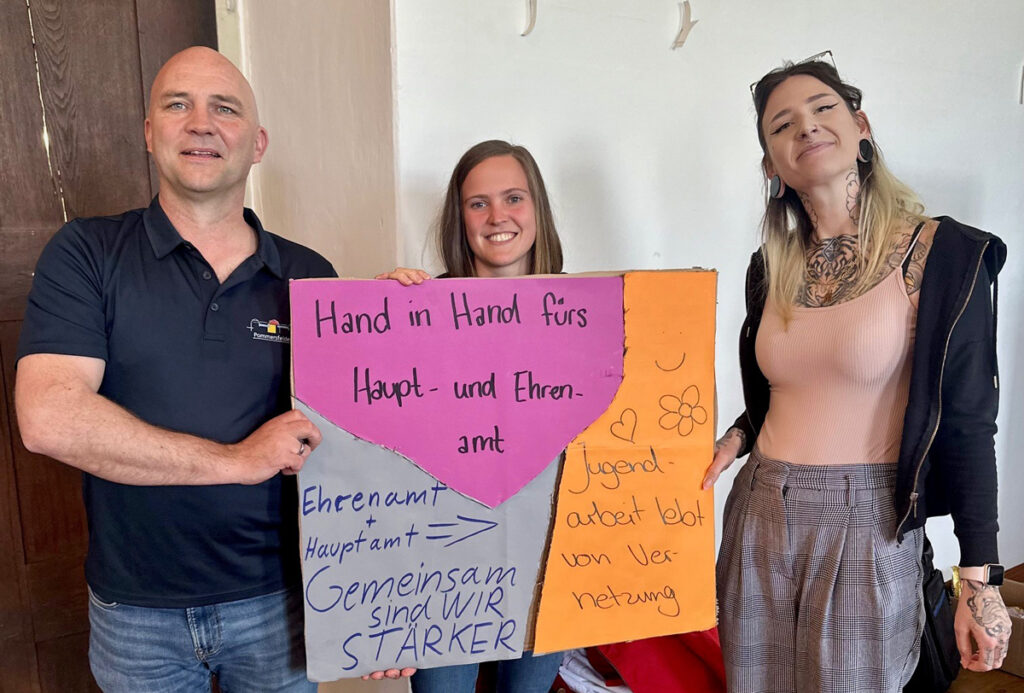 Hand in Hand fürs
Haupt- und Ehren-
amt
Ehrenamt
+
Hauptamt =>
Gemeinsam
sind WIR
STÄRKER
Jugend-
arbeit lebt
von Ver-
netzung
Pommersfelden